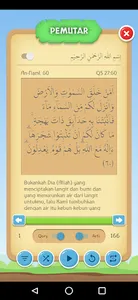 PEMUTAR
بِسْمِ اللّٰهِ الرَّحْمٰنِ الرَّحِيْمِ
An-Naml: 60 QS 27:60
اَمَّنْ خَلَقَ السَّمٰوٰتِ وَالْاَرْضَ
وَاَنْزَلَ لَكُمْ مِّنَ السَّمَاۤءِ مَاۤءً
فَاَنْۢبَتْنَا بِهٖ حَدَاۤىِٕقَ ذَاتَ بَهْجَةٍۚ
مَا كَانَ لَكُمْ اَنْ تُنْۢبِتُوْا شَجَرَهَاۗ
ءَاِلٰهٌ مَّعَ اللّٰهِ ۗبَلْ هُمْ قَوْمٌ يَّعْدِلُوْنَ
(٦٠)
Bukankah Dia (Allah) yang
menciptakan langit dan bumi dan
yang menurunkan air dari langit
untukmu, lalu Kami tumbuhkan
dengan air itu kebun-kebun yang
1
166